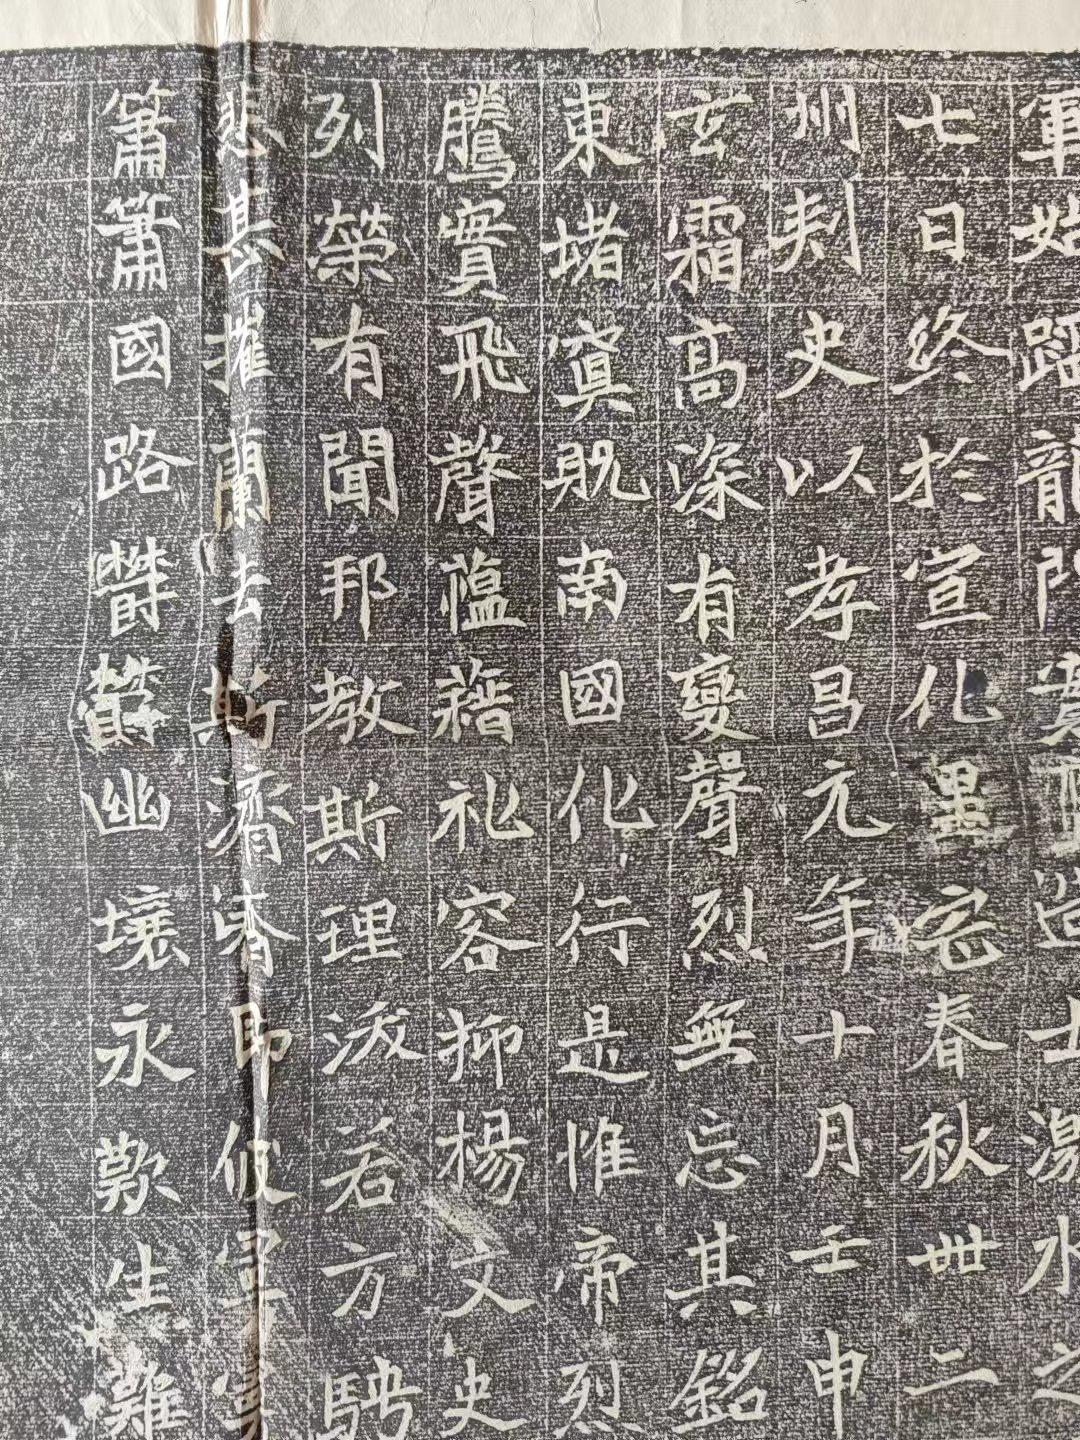 軍始蹈龍門造士激水之
七日終於宣化里宅春秋卌二
州刺史以孝昌元年十月壬申
玄霜高深有變聲烈無忘其銘
東堵寘貺南國化行是惟帝烈
騰實飛聲蘊藉礼容抑楊文史
列榮有聞邦教斯理若方騁
悲甚摧蘭去斯濟濟即彼冥冥
簫簫國路欝欝幽壤永歎生難